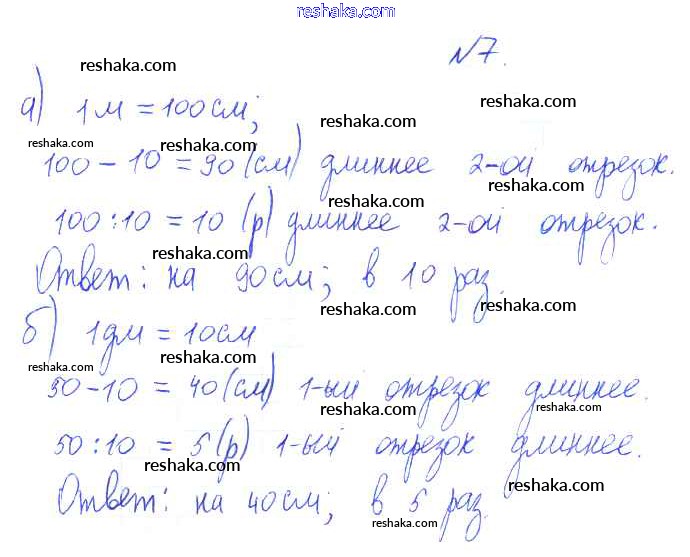 reshaka.com
№7.
reshaka.com
reshaka.com
а) 1м = 100см;
reshaka.com
reshaka.com
reshaka.com
100 - 10 = 90 (см) длиннее 2-ой отрезок.
reshaka.com
reshaka.com
100 : 10 = 10 (р) длиннее 2-ой отрезок.
reshaka.com
reshaka.com
Ответ: на 90см; в 10 раз.
reshaka.com
reshaka.com
б) 1дм = 10см
reshaka.com
reshaka.com
50-10 = 40 (см) 1-ый отрезок длиннее.
reshaka.com
reshaka.com
50 : 10 = 5 (р) 1-ый отрезок длиннее.
reshaka.com
reshaka.com
Ответ: на 40см; в 5 раз.
reshaka.com
reshaka.com